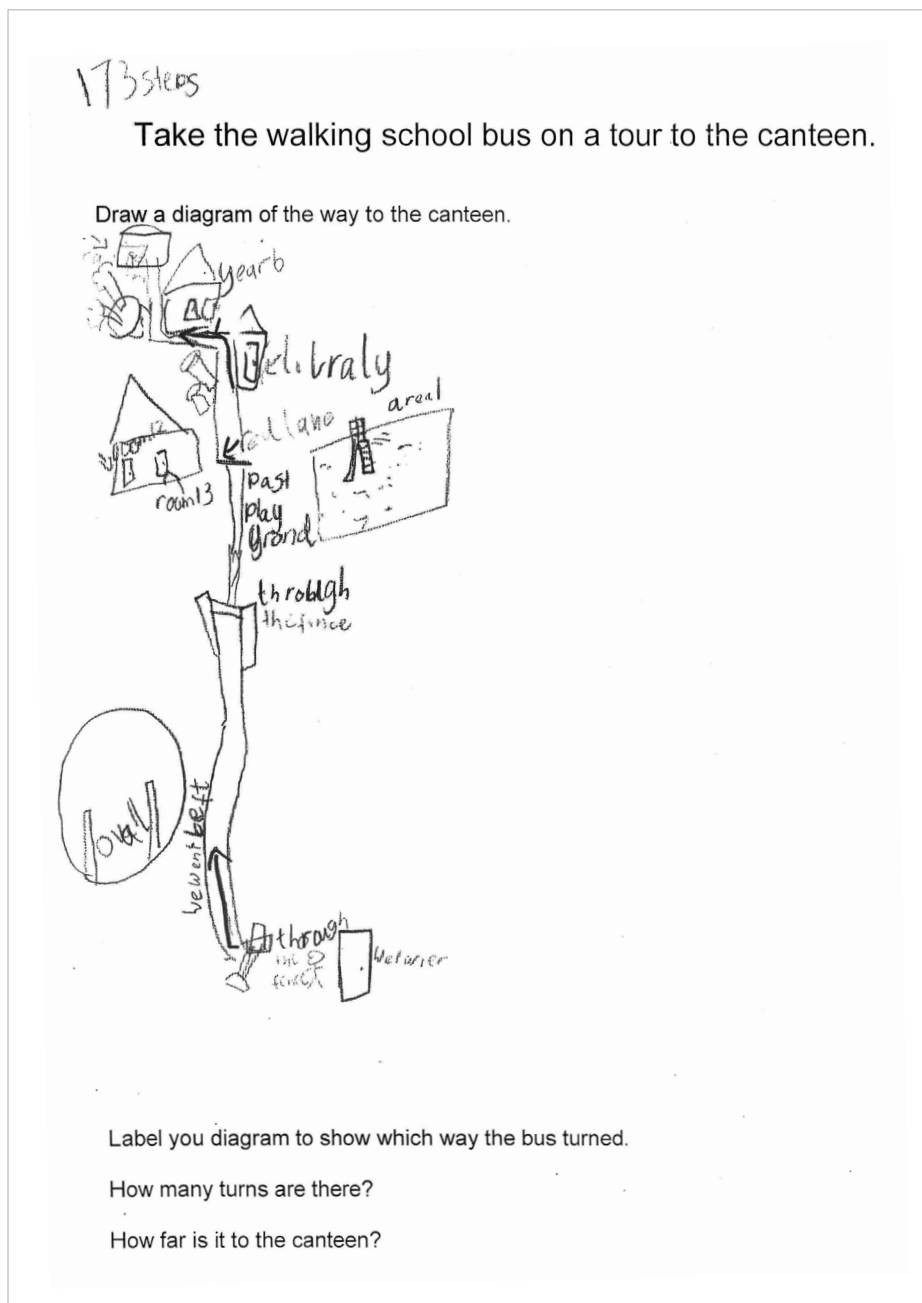 173 steps
Take the walking school bus on a tour to the canteen.
Draw a diagram of the way to the canteen.
year 6
libraly
area1
red lane
room12
room13
past
play
grond
through
the fince
oval
we went left
through
the
Label you diagram to show which way the bus turned.
How many turns are there?
How far is it to the canteen?